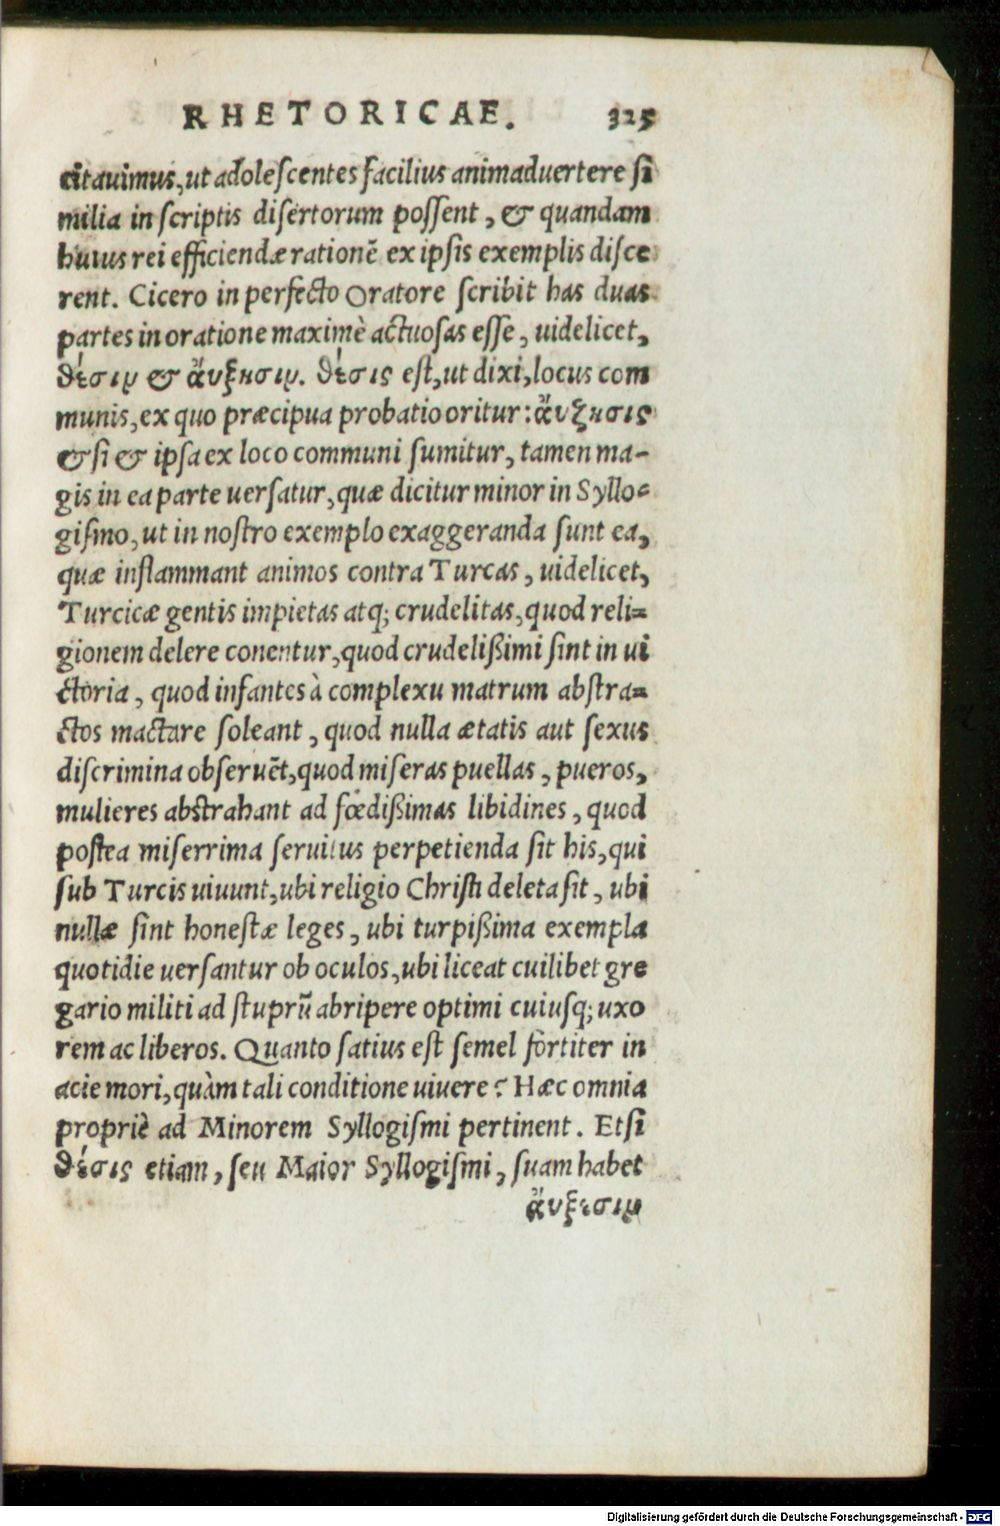 RHETORICAE. 325
citauimus, ut adoleſcentes facilius animaduertere ſi
milia in ſcriptis diſertorum poſſent, & quandam
huius rei efficiendæ rationẽ ex ipſis exemplis diſce
rent. Cicero in perfecto Oratore ſcribit has duas
partes in oratione maximè actuoſas eſſe, uidelicet,
θέσιν & ἄυξησιν. θέσις eſt, ut dixi, locus com
munis, ex quo præcipua probatio oritur: ἄυξησις
& ſi & ipſa ex loco communi ſumitur, tamen ma-
gis in ea parte uerſatur, quæ dicitur minor in Syllo-
giſmo, ut in noſtro exemplo exaggeranda ſunt ea,
quæ inflammant animos contra Turcas, uidelicet,
Turcicæ gentis impietas atq; crudelitas, quod reli-
gionem delere conentur, quod crudelißimi ſint in ui
ctoria, quod infantes à complexu matrum abſtra-
ctos mactare ſoleant, quod nulla ætatis aut ſexus
diſcrimina obſeruẽt, quod miſeras puellas, pueros,
mulieres abſtrahant ad fœdißimas libidines, quod
poſtea miſerrima ſeruitus perpetienda ſit his, qui
ſub Turcis uiuunt, ubi religio Chriſti deleta ſit, ubi
nullæ ſint honeſtæ leges, ubi turpißima exempla
quotidie uerſantur ob oculos, ubi liceat cuilibet gre
gario militi ad ſtuprũ abripere optimi cuiuſq; uxo
rem ac liberos. Quanto ſatius eſt ſemel fortiter in
acie mori, quàm tali conditione uiuere? Hæc omnia
propriè ad Minorem Syllogiſmi pertinent. Etſi
θέσις etiam, ſeu Maior Syllogiſmi, ſuam habet
ἄυξεσιν
Digitalisierung gefördert durch die Deutsche Forschungsgemeinschaft - DFG